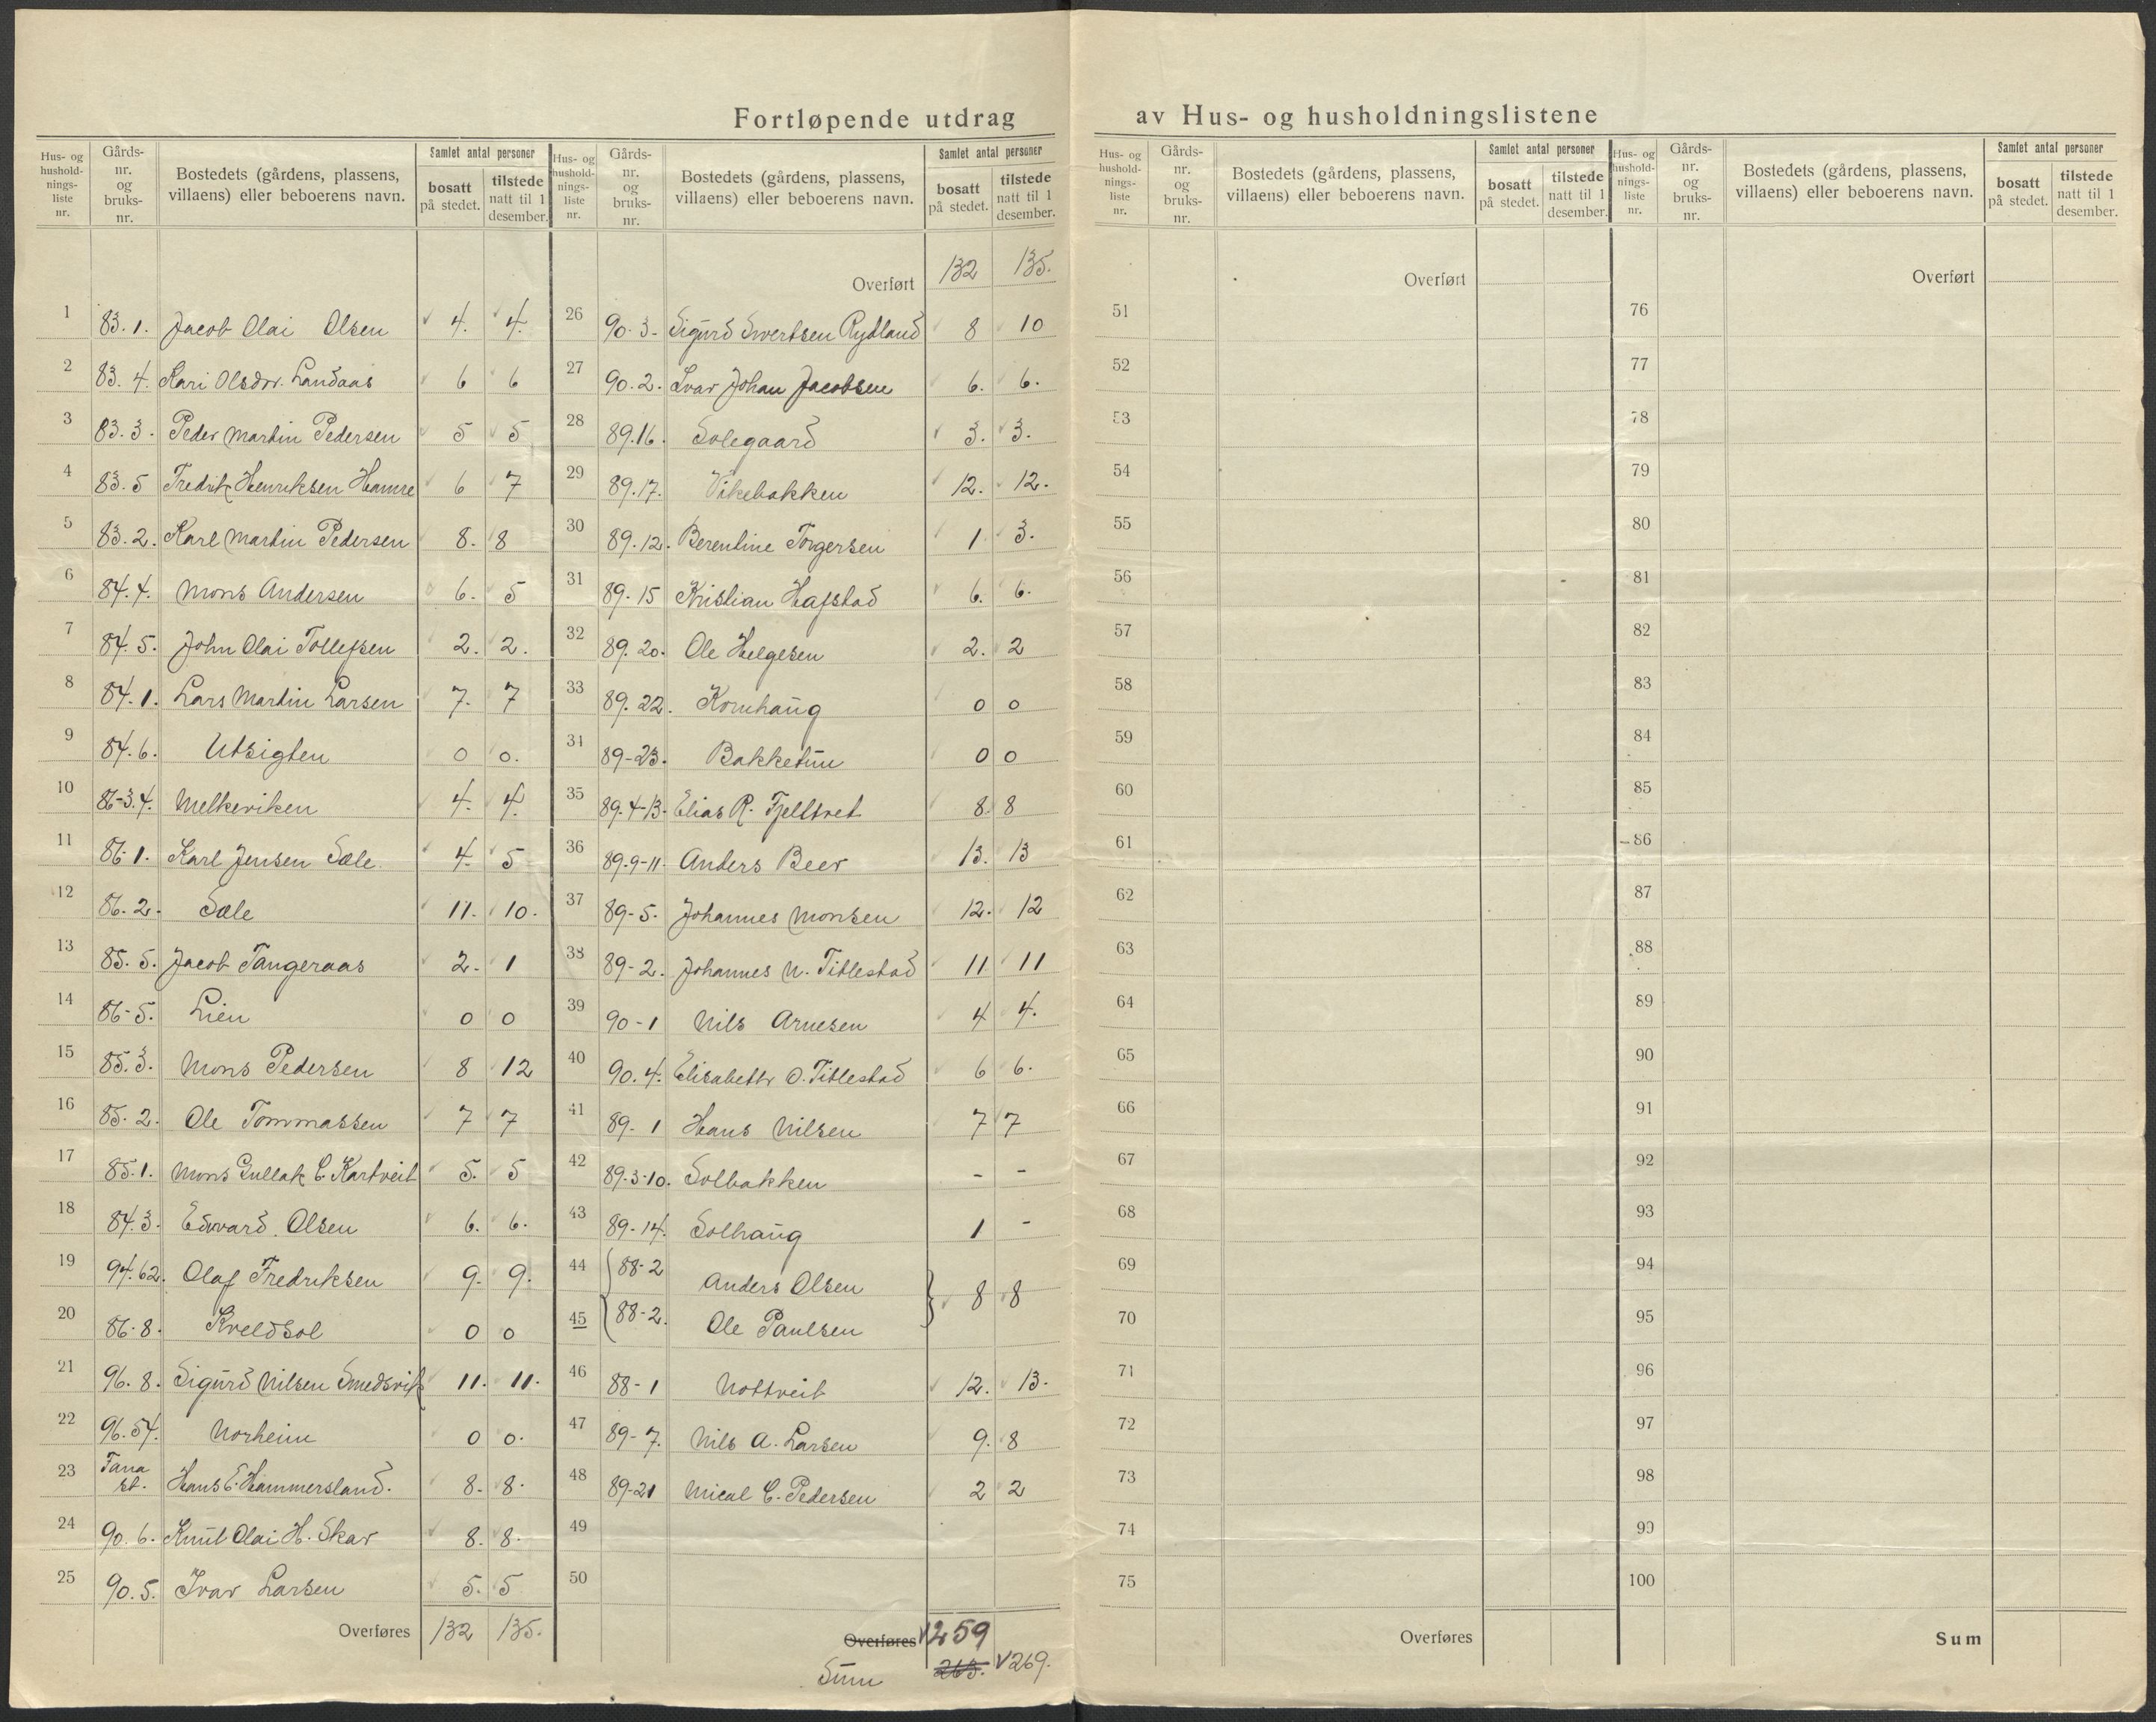 Fortløpende utdrag av Hus- og husholdningslistene
Hus- og hushold-nings-liste nr. Gårds-nr. og bruks-nr. Bostedets (gårdens, plassens, villaens) eller beboerens navn. Samlet antal personer bosatt på stedet. tilstede natt til 1 desember.
1 83.1. Jacob Olai Olsen 4. 4.
2 83.4. Kari Olsdr. Landaas 6 6
3 83.3. Peder Martin Pedersen 5 5
4 83.5 Fredrik Henriksen Hamre 6 7
5 83.2. Karl Martin Pedersen 8. 8
6 84.4. Mons Andersen 6. 5
7 84.5. John Olai Tollefsen 2. 2.
8 84.1. Lars Martin Larsen 7. 7
9 84.6. Utsigten 0 0.
10 86-3.4. Melkeviken 4. 4.
11 86-1. Karl Jensen Sæle. 4. 5
12 86.2. Sæle 11. 10.
13 85.5. Jacob Tangeraas 2. 1
14 86-5. Lien 0 0
15 85.3. Mons Pedersen 8 12
16 85.2. Ole Tommassen 7 7
17 85.1. Mons Gullak C. Kartveit 5. 5
18 84.3. Edvard. Olsen 6. 6.
19 94.62. Olaf Fredriksen 9. 9.
20 86-8. Kveldsol 0 0
21 96.8. Sigurd Nilsen Smedsvik 11. 11.
22 96.54. Norheim 0 0.
23 Tana st. Hans E. Hammersland. 8. 8.
24 90.6. Knut Olai H. Skar 8. 8.
25 90.5. Ivar Larsen 5. 5
Overføres 132 135.
Hus- og hushold-nings-liste nr. Gårds-nr. og bruks-nr. Bostedets (gårdens, plassens, villaens) eller beboerens navn. Samlet antal personer bosatt på stedet. tilstede natt til 1 desember.
Overført 132 135.
26 90.3. Sigurd Sivertsen Rydland 8 10
27 90.2. Ivar Johan Jacobsen 6. 6.
28 89.16. Solegaard 3. 3.
29 89.17. Vikebakken 12. 12.
30 89.12. Berentine Torgersen 1 3.
31 89.15 Kristian Hafstad 6. 6.
32 89.20. Ole Helgesen 2. 2
33 89.22. Kornhaug 0 0
34 89-23. Bakketun 0 0
35 89.4-13. Elias R. Fjelltvet 8. 8
36 89.9-11. Anders Beer 13. 13
37 89-5. Johannes Monsen 12. 12
38 89-2. Johannes N. Titlestad 11 11
39 90-1 Nils Arnesen 4 4.
40 90.4. Elisabeth O. Titlestad 6 6.
41 89-1 Hans Nilsen 7 7
42 89.3-10. Solbakken - -
43 89-14. Solhaug 1 -
44 88-2 Anders Olsen
45 88-2. Ole Paulsen 8 8
46 88-1 Nottveit 12. 13.
47 89-7. Nils A. Larsen 9. 8
48 89-21 Mical C. Pedersen 2 2
49
50
Overføres 259
Sum 263. 269.
Hus- og hushold-nings-liste nr. Gårds-nr. og bruks-nr. Bostedets (gårdens, plassens, villaens) eller beboerens navn. Samlet antal personer bosatt på stedet. tilstede natt til 1 desember.
Overført
51
52
53
54
55
56
57
58
59
60
61
62
63
64
65
66
67
68
69
70
71
72
73
74
75
Overføres
Hus- og hushold-nings-liste nr. Gårds-nr. og bruks-nr. Bostedets (gårdens, plassens, villaens) eller beboerens navn. Samlet antal personer bosatt på stedet. tilstede natt til 1 desember.
Overført
76
77
78
79
80
81
82
83
84
85
86
87
88
89
90
91
92
93
94
95
96
97
98
99
100
Sum